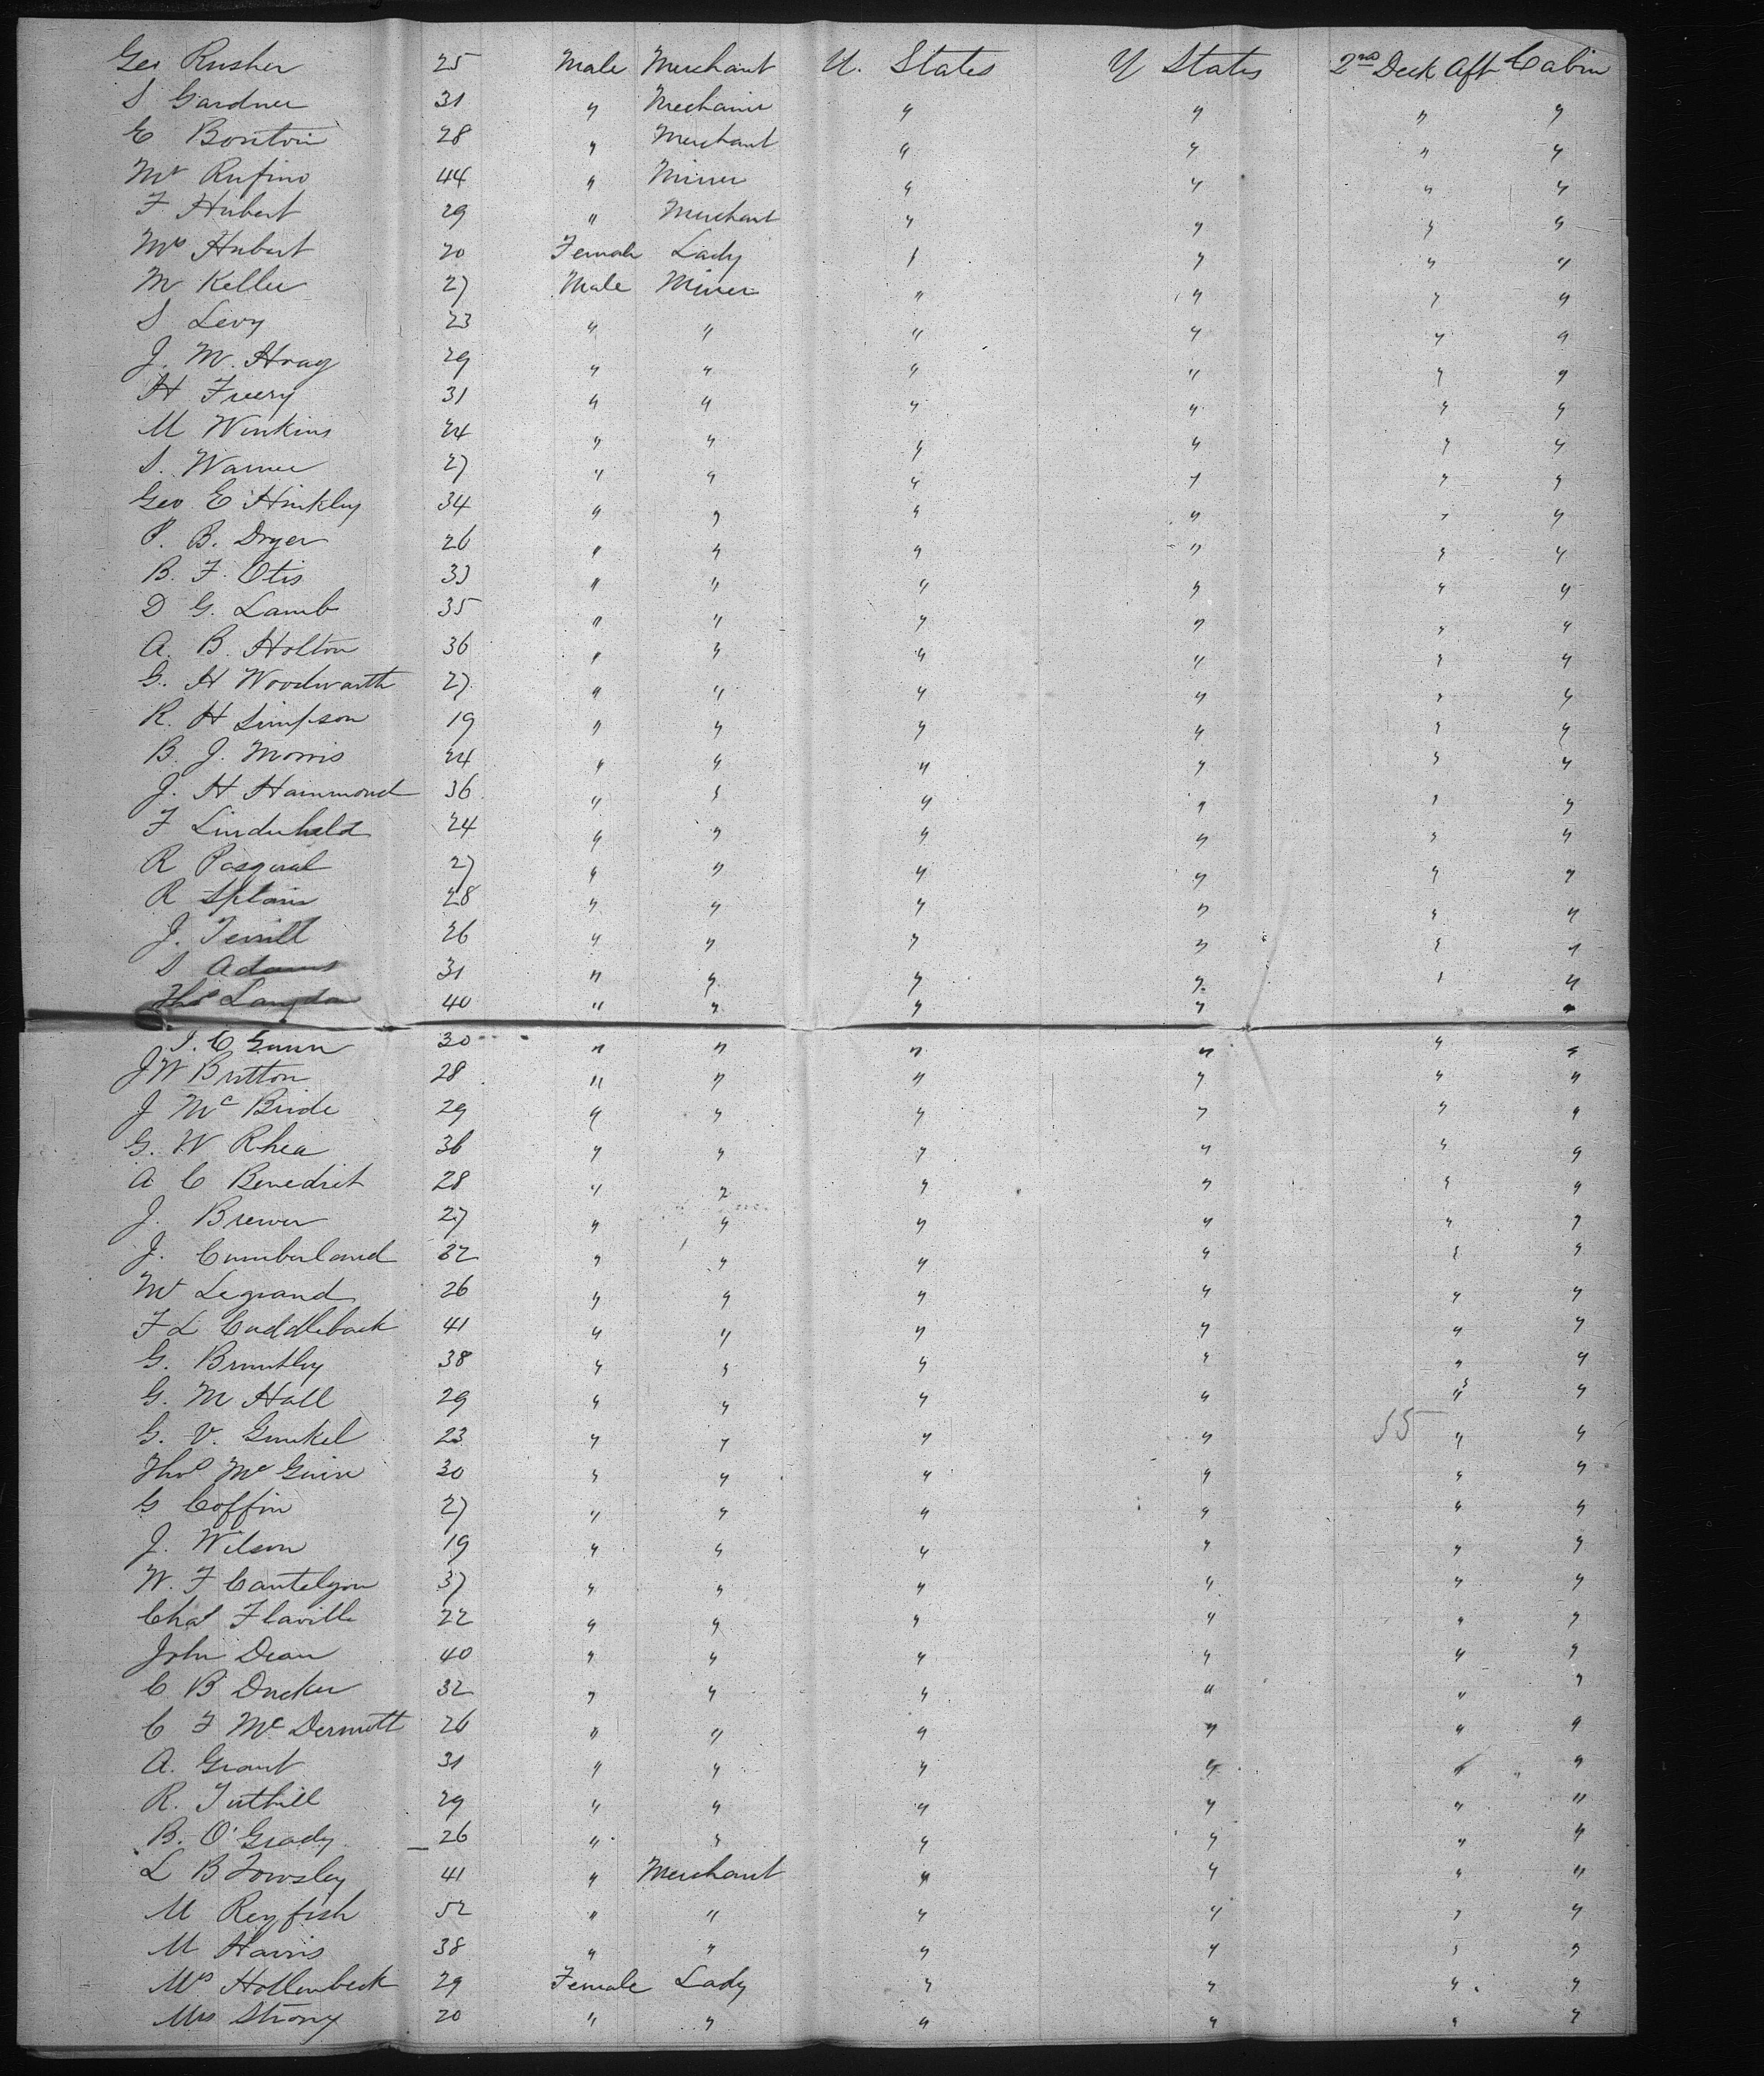 Geo Rusher 25 Male Merchant U. States U States 2nd Deck Aft Cabin
S Gardner 31 " Mechanic " " " "
E Bontoin 28 " Merchant " " " "
Mr Rufino 44 " Miner " " " "
F Hubert 29 " Merchant " " " "
Mrs Hubert 20 Female Lady " " " "
M Keller 27 Male Miner " " " "
S Levy 23 " " " " " "
J. M. Hoag 29 " " " " " "
H Freery 31 " " " " " "
M Winkins 24 " " " " " "
S. Warner 27 " " " " " "
Geo E Hinkley 34 " " " " " "
P. B. Dryer 26 " " " " " "
B. F. Otis 33 " " " " " "
D G. Lamb 35 " " " " " "
A. B. Holton 36 " " " " " "
G. H Woodwarth 27 " " " " " "
R. H Simpson 19 " " " " " "
B. J. Morris 24 " " " " " "
J. H Hammond 36 " " " " " "
F Linduheld 24 " " " " " "
R Pasqual 27 " " " " " "
R Splain 28 " " " " " "
J. Terrill 26 " " " " " "
S Adams 31 " " " " " "
Thos Langdon 40 " " " " "
J. C Gunn 30 " " " " " "
J W Britton 28 " " " " " "
J McBride 29 " " " " " "
G. W Rhea 36 " " " " " "
A C Benedict 28 " " " " " "
J. Brewer 27 " " " " " "
J. Cumberland 32 " " " " " "
Mr Legrand 26 " " " " " "
F L Cuddleback 41 " " " " " "
G. Brumtley 38 " " " " " "
G. M Hall 29 " " " " " "
G. V. Gunkel 23 " " " " 55 " "
Thos McGuire 30 " " " " " "
G Coffin 27 " " " " " "
J. Wilson 19 " " " " " "
W. F Cantelyou 37 " " " " " "
Chas Flaville 22 " " " " " "
John Dean 40 " " " " " "
C B Ducker 32 " " " " " "
C F McDermott 26 " " " " " "
A. Grant 31 " " " " " "
R. Tuthill 29 " " " " " "
B. O'Grady 26 " " " " " "
L B Towsley 41 " Merchant " " " "
M Reyfish 52 " " " " " "
M Harris 38 " " " " " "
Mrs Hollenbeck 29 Female Lady " " " "
Mrs Strong 20 " " " " " "